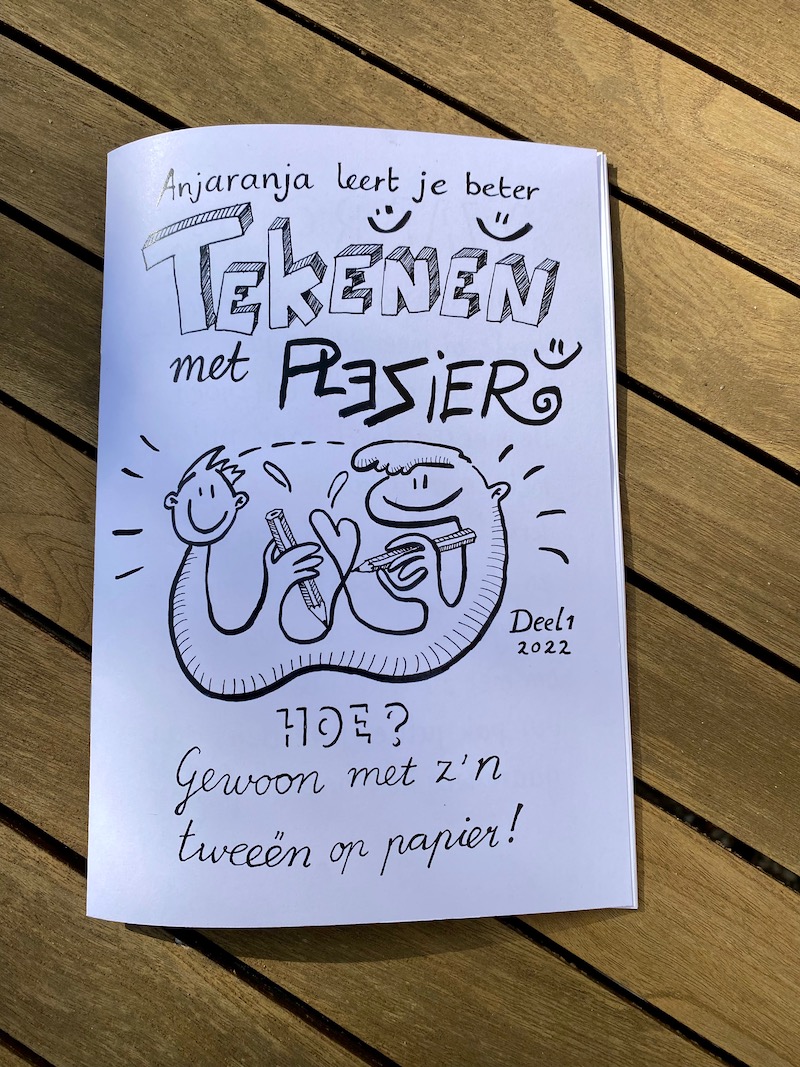 Anjaranja leert je beter
TEKENEN
met PLEZIER
Deel 1
2022
HOE?
Gewoon met z'n
tweeën op papier!